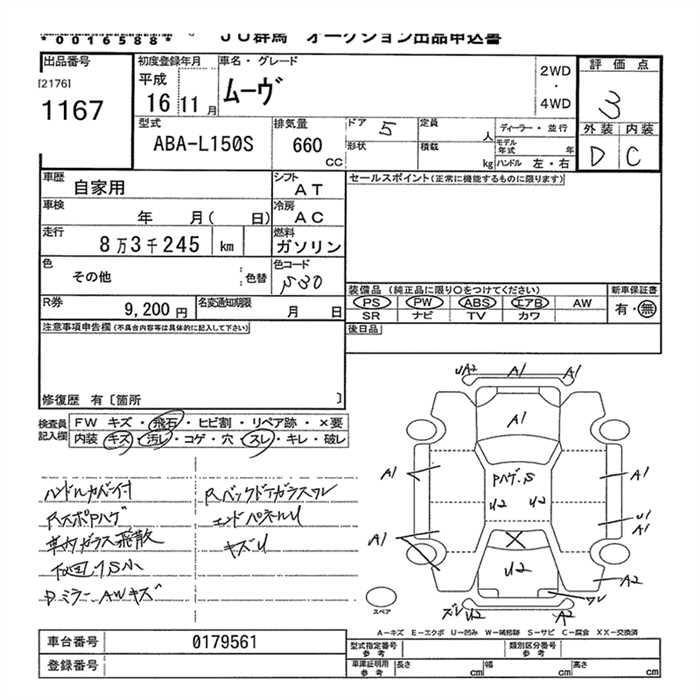 *0016588* JU群馬 オークション出品申込書
出品番号
[2176]
1167
初度登録年月
平成
16 11月
車名・グレード
ムーヴ
2WD
・
4WD
評価点
3
外装 内装
D C
型式
ABA-L150S
排気量
660
CC
ドア 5
定員 人
ディーラー・並行
形状
積載 kg
モデル年式 年
ハンドル 左・右
車歴
自家用
シフト
AT
セールスポイント(正常に機能するものに限ります)
車検
年 月( 日)
冷房
AC
走行
8万3千245 km
燃料
ガソリン
色
その他
: 色替
色コード
S30
装備品 (純正品に限り○をつけてください)
新車保証書
PS PW ABS エアB AW
有・無
SR ナビ TV カワ
R券
9,200円
名変通知期限
月 日
後日品
注意事項申告欄(不具合内容等は具体的に記入して下さい)
修復歴 有〔箇所 〕
検査員記入欄
FW キズ・飛石・ヒビ割・リペア跡・×要
内装 キズ・汚レ・コゲ・穴・スレ・キレ・破レ
ハンドルカバー付
Rスポ Pハゲ
車内ガラス飛散
下回り S小
Dミラー AWキズ
Rバックドアガラスワレ
エンドパネルU
キズU
UA2 A1 A1
A1
A1 A1
Pハゲ.S
U2 U2
A1
U1
A1
U2
A2
ワレ
ズレ U2 A2
スペア
A-キズ E-エクボ U-凹み W-補修跡 S-サビ C-腐食 XX-交換済
車台番号
0179561
登録番号
型式指定番号
参考
類別区分番号
参考
車庫証明用
参考
長さ cm
幅 cm
高さ cm